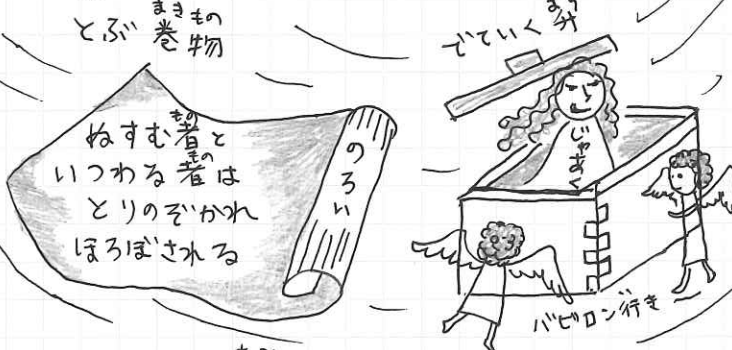 とぶ巻物
まきもの
ぬすむ者と
もの
いつわる者は
もの
とりのぞかれ
ほろぼされる
のろい
でていく升
ます
じゃあく
バビロン行き